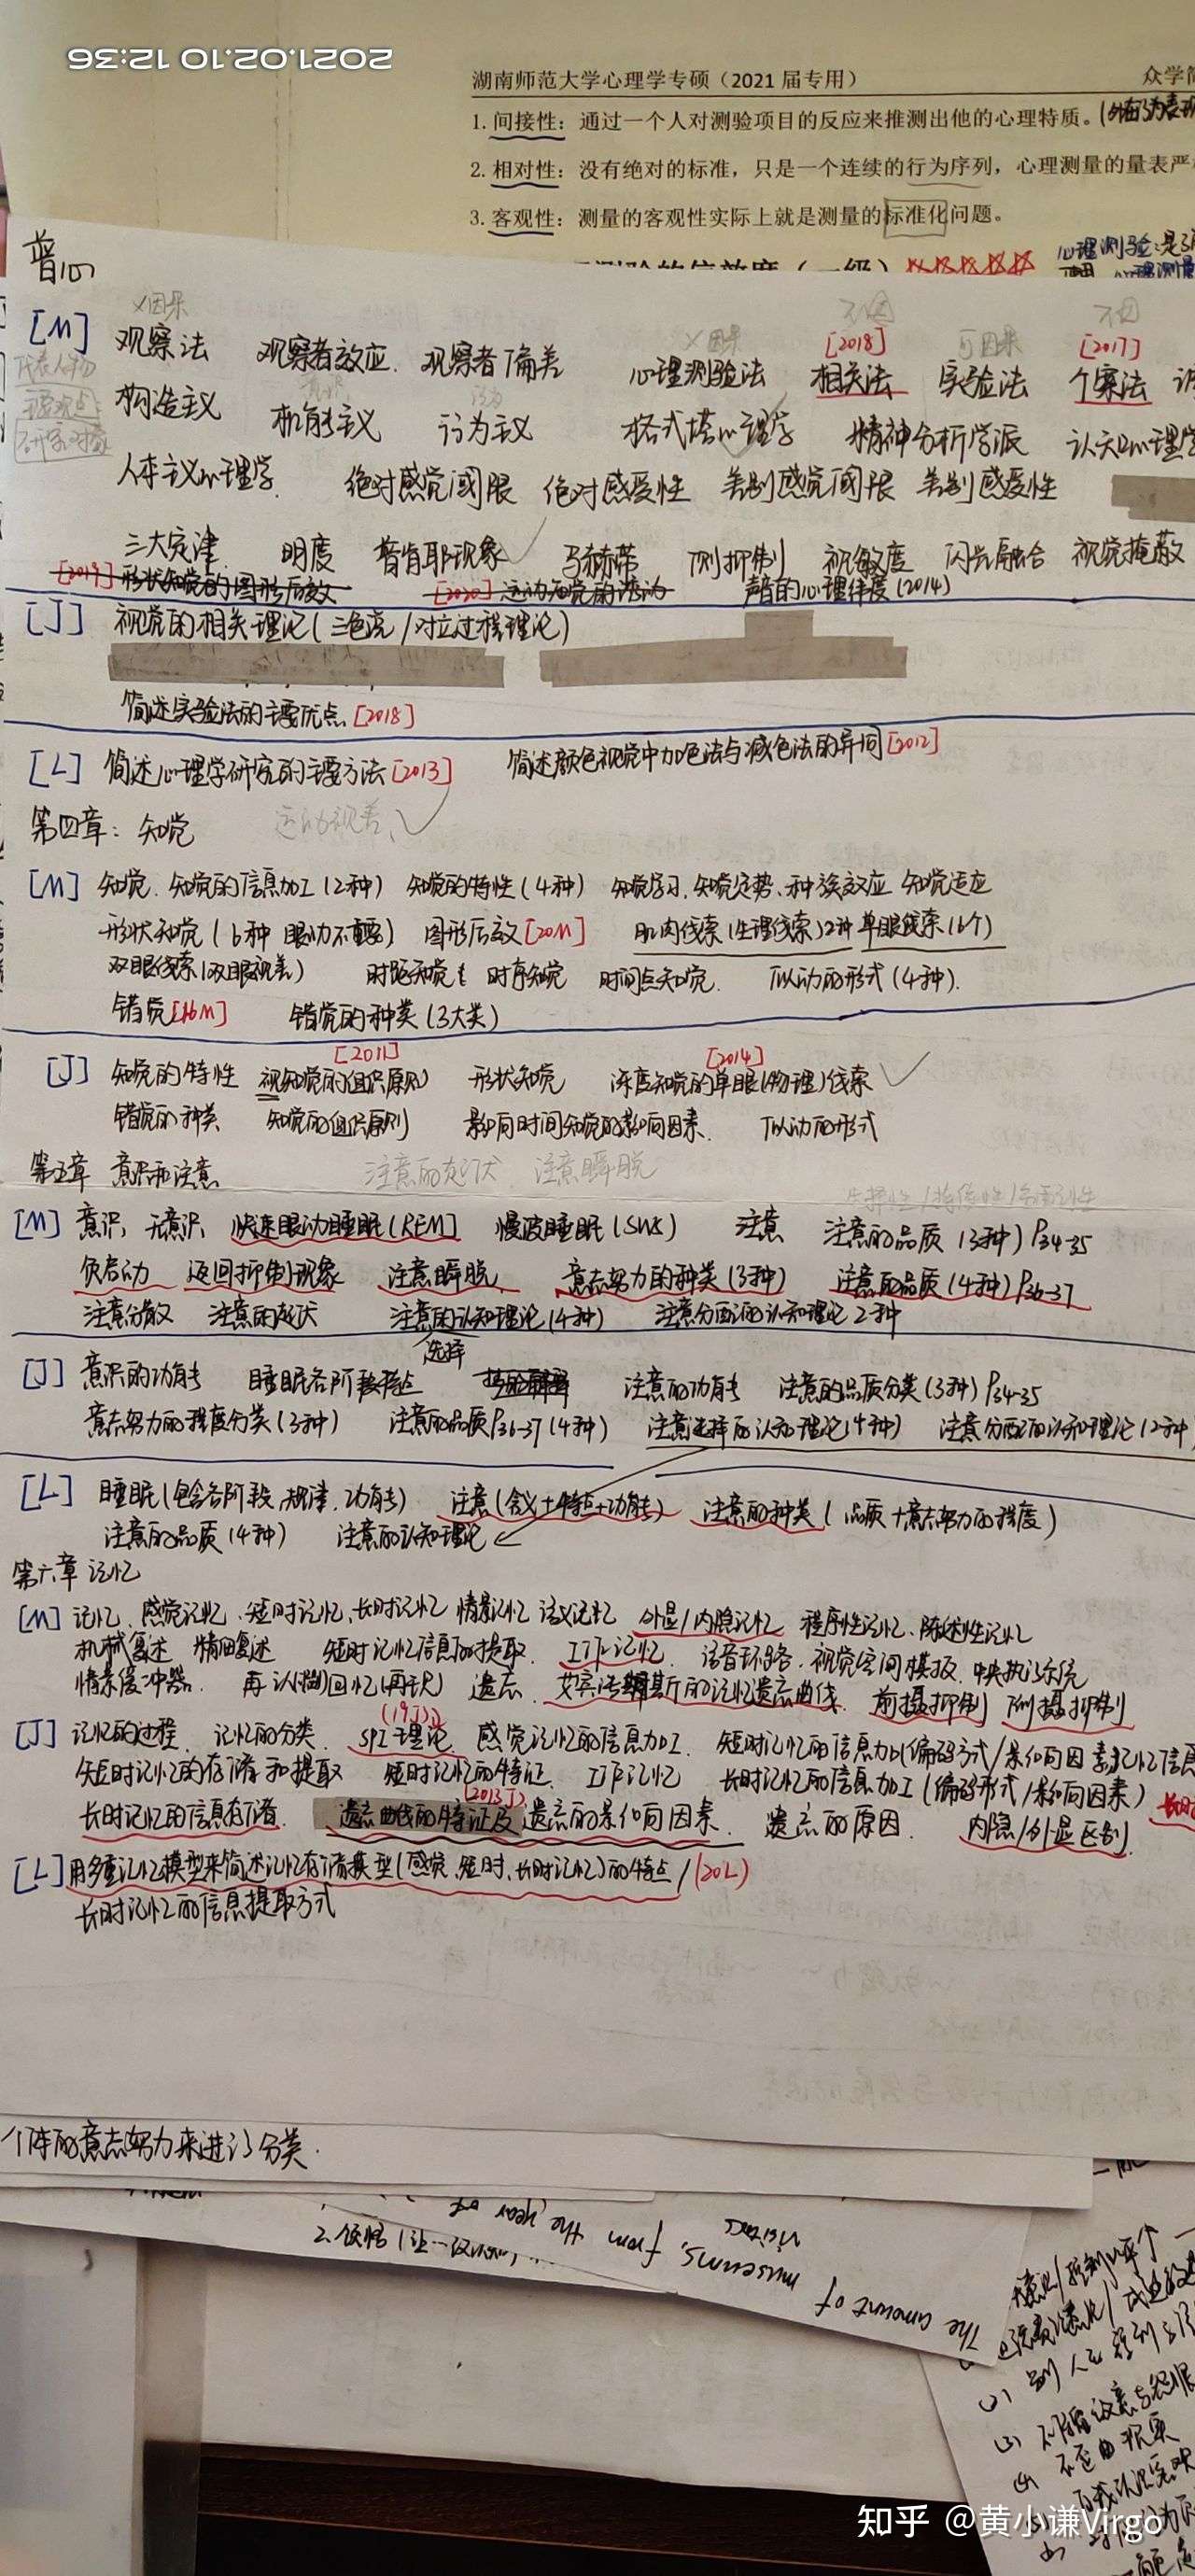 2021.02.10 12:36
湖南师范大学心理学专硕（2021 届专用）
众学简
1. 间接性：通过一个人对测验项目的反应来推测出他的心理特质。(外在行为表现
2. 相对性：没有绝对的标准，只是一个连续的行为序列，心理测量的量表严
3. 客观性：测量的客观性实际上就是测量的标准化问题。
心理测验:是
普心
×因果 不因 不因
[M] 观察法 观察者效应 观察者偏差 心理测验法 相关法 [2018] 实验法 可因果 个案法 [2017]
代表人物
主要观点
研究对象
构造主义 机能主义 行为主义 格式塔心理学 精神分析学派 认知心理学
人本主义心理学 绝对感觉阈限 绝对感受性 差别感觉阈限 差别感受性
三大定律 明度 普肯耶现象 马赫带 侧抑制 视敏度 闪光融合 视觉掩蔽
[2019] 形状知觉的图形后效 [2020] 运动知觉的诱动 声音的心理维度(2014)
[J] 视觉的相关理论(三色说/对立过程理论)
简述实验法的主要优点 [2018]
[L] 简述心理学研究的主要方法[2013] 简述颜色视觉中加色法与减色法的异同[2012]
第四章：知觉 运动视差
[M] 知觉、知觉的信息加工(2种) 知觉的特性(4种) 知觉学习、知觉定势、种族效应 知觉适应
形状知觉(6种 眼动不重要) 图形后效[20M] 肌肉线索(生理线索)2种 单眼线索(6个)
双眼线索(双眼视差) 时距知觉 时序知觉 时间点知觉 似动的形式(4种).
错觉[16M] 错觉的种类(3大类)
[2011] [2014]
[J] 知觉的特性 视知觉的组织原则 形状知觉 深度知觉的单眼(物理)线索
错觉的种类 知觉的组织原则 影响时间知觉的影响因素 似动的形式
第五章 意识和注意 注意的起伏 注意瞬脱
[M] 意识, 无意识, 快速眼动睡眠[REM] 慢波睡眠(SWS) 注意 注意的品质(3种) P34-35
负启动 返回抑制现象 注意瞬脱 意志努力的种类(3种) 注意的品质(4种) P36-37
注意分散 注意的起伏 注意的认知理论(4种) 注意分配的认知理论2种
选择
[J] 意识的功能 睡眠各阶段特点 注意的功能 注意的品质分类(3种) P34-35
意志努力的程度分类(3种) 注意的品质P36-37(4种) 注意选择的认知理论(4种) 注意分配的认知理论(2种
[L] 睡眠(包含各阶段,规律,功能) 注意(含义+特点+功能) 注意的种类(品质+意志努力的程度)
注意的品质(4种) 注意的认知理论
第六章 记忆
[M] 记忆、感觉记忆、短时记忆、长时记忆 情景记忆 语义记忆 外显/内隐记忆 程序性记忆、陈述性记忆
机械复述 精细复述 短时记忆信息的提取 工作记忆 语音环路、视觉空间模板、中央执行系统
情景缓冲器 再认 回忆(再现) 遗忘 艾宾浩斯的记忆遗忘曲线 前摄抑制 倒摄抑制
(19J)
[J] 记忆的过程 记忆的分类 SPI理论 感觉记忆的信息加工 短时记忆的信息加工(编码方式/影响因素
短时记忆的存储和提取 短时记忆的特征 工作记忆 长时记忆的信息加工(编码形式/影响因素)
(2013J)
长时记忆的信息存储 遗忘曲线的特征及遗忘的影响因素 遗忘的原因 内隐/外显区别
[L] 用多重记忆模型来简述记忆存储模型(感觉、短时、长时记忆)的特点/(20L)
长时记忆的信息提取方式
个体的意志努力来进行分类.
The amount of museums, from the year of
知乎 @黄小谦Virgo